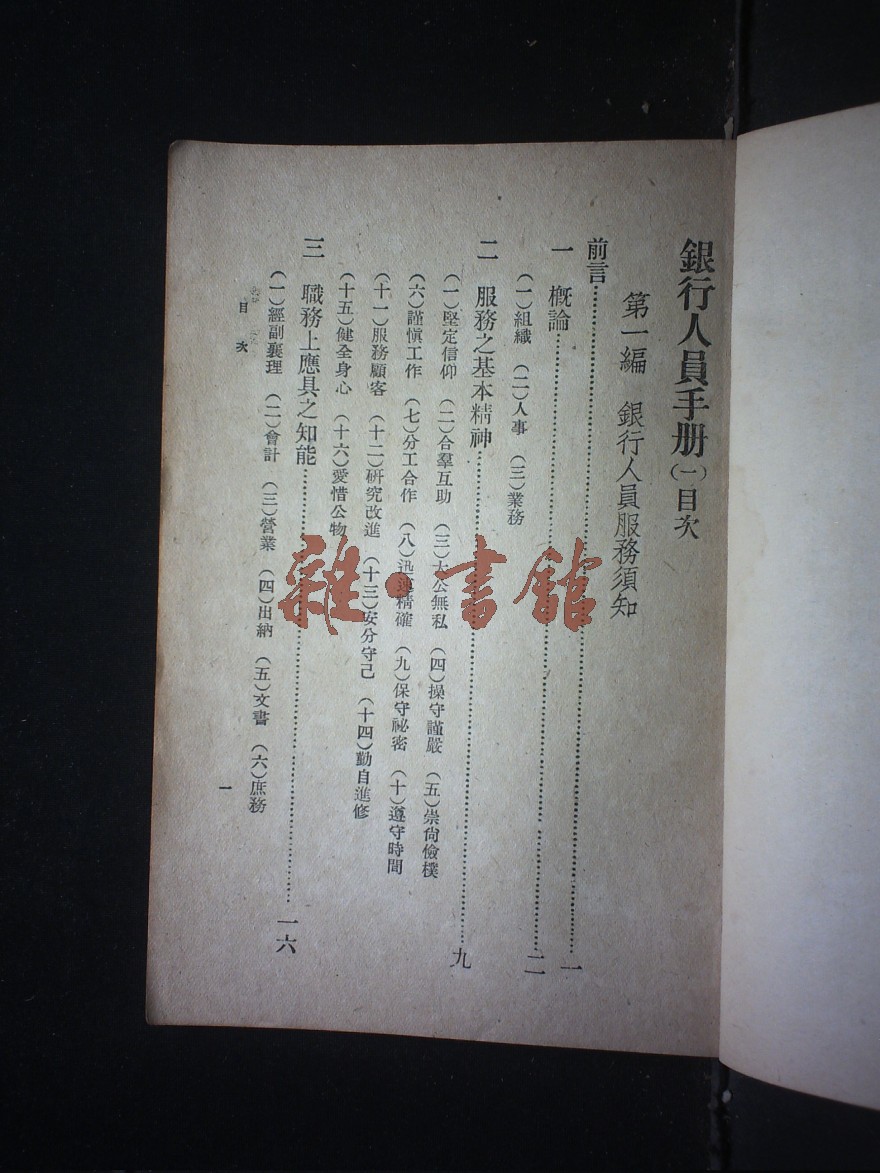 銀行人員手册(一)目次
第一編　銀行人員服務須知
前言……一
一　概論……二
(一)組織　(二)人事　(三)業務
二　服務之基本精神……九
(一)堅定信仰　(二)合羣互助　(三)大公無私　(四)操守謹嚴　(五)崇尙儉樸
(六)謹愼工作　(七)分工合作　(八)迅速精確　(九)保守祕密　(十)遵守時間
(十一)服務顧客　(十二)硏究改進　(十三)安分守己　(十四)勤自進修
(十五)健全身心　(十六)愛惜公物
三　職務上應具之知能……一六
(一)經副襄理　(二)會計　(三)營業　(四)出納　(五)文書　(六)庶務
目次
一
雜·書館